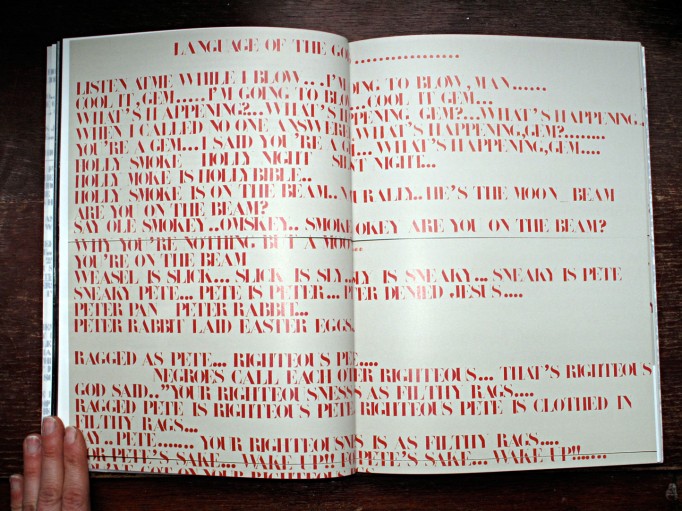 LANGUAGE OF THE GO...............
LISTEN ATME WHILE I BLOW... I'M GOING TO BLOW, MAN......
COOL IT, GEM..... I'M GOING TO BLOW...COOL IT GEM...
WHAT'S HAPPENING?... WHAT'S HAPPENING, GEM?...WHAT'S HAPPENING..
WHEN I CALLED NO ONE ANSWERE WHAT'S HAPPENING,GEM?........
YOU'RE A GEM...I SAID YOU'RE A GEM... WHAT'S HAPPENING,GEM....
HOLLY SMOKE HOLLY NIGHT SILENT NIGHT...
HOLLY MOKE IS HOLLY BIBLE..
HOLLY SMOKE IS ON THE BEAM.. NATURALLY.. HE'S THE MOON_BEAM
ARE YOU ON THE BEAM?
SAY OLE SMOKEY.. OMSKEY.. SMOKEOKEY ARE YOU ON THE BEAM?
WHY YOU'RE NOTHING BUT A MOO...
YOU'RE ON THE BEAM
WEASEL IS SLICK... SLICK IS SLY..SLY IS SNEAKY... SNEAKY IS PETE
SNEAKY PETE... PETE IS PETER... PETER DENIED JESUS....
PETER PAN PETER RABBIT...
PETER RABBIT LAID EASTER EGGS.
RAGGED AS PETE... RIGHTEOUS PETE....
NEGROES CALL EACH OTHER RIGHTEOUS... THAT'S RIGHTEOUS
GOD SAID.."YOUR RIGHTEOUSNESS AS FILTHY RAGS....
RAGGED PETE IS RIGHTEOUS PETE RIGHTEOUS PETE IS CLOTHED IN
FILTHY RAGS...
SAY..PETE....... YOUR RIGHTEOUSNESS IS AS FILTHY RAGS....
FOR PETE'S SAKE... WAKE UP!! FOR PETE'S SAKE... WAKE UP!!......